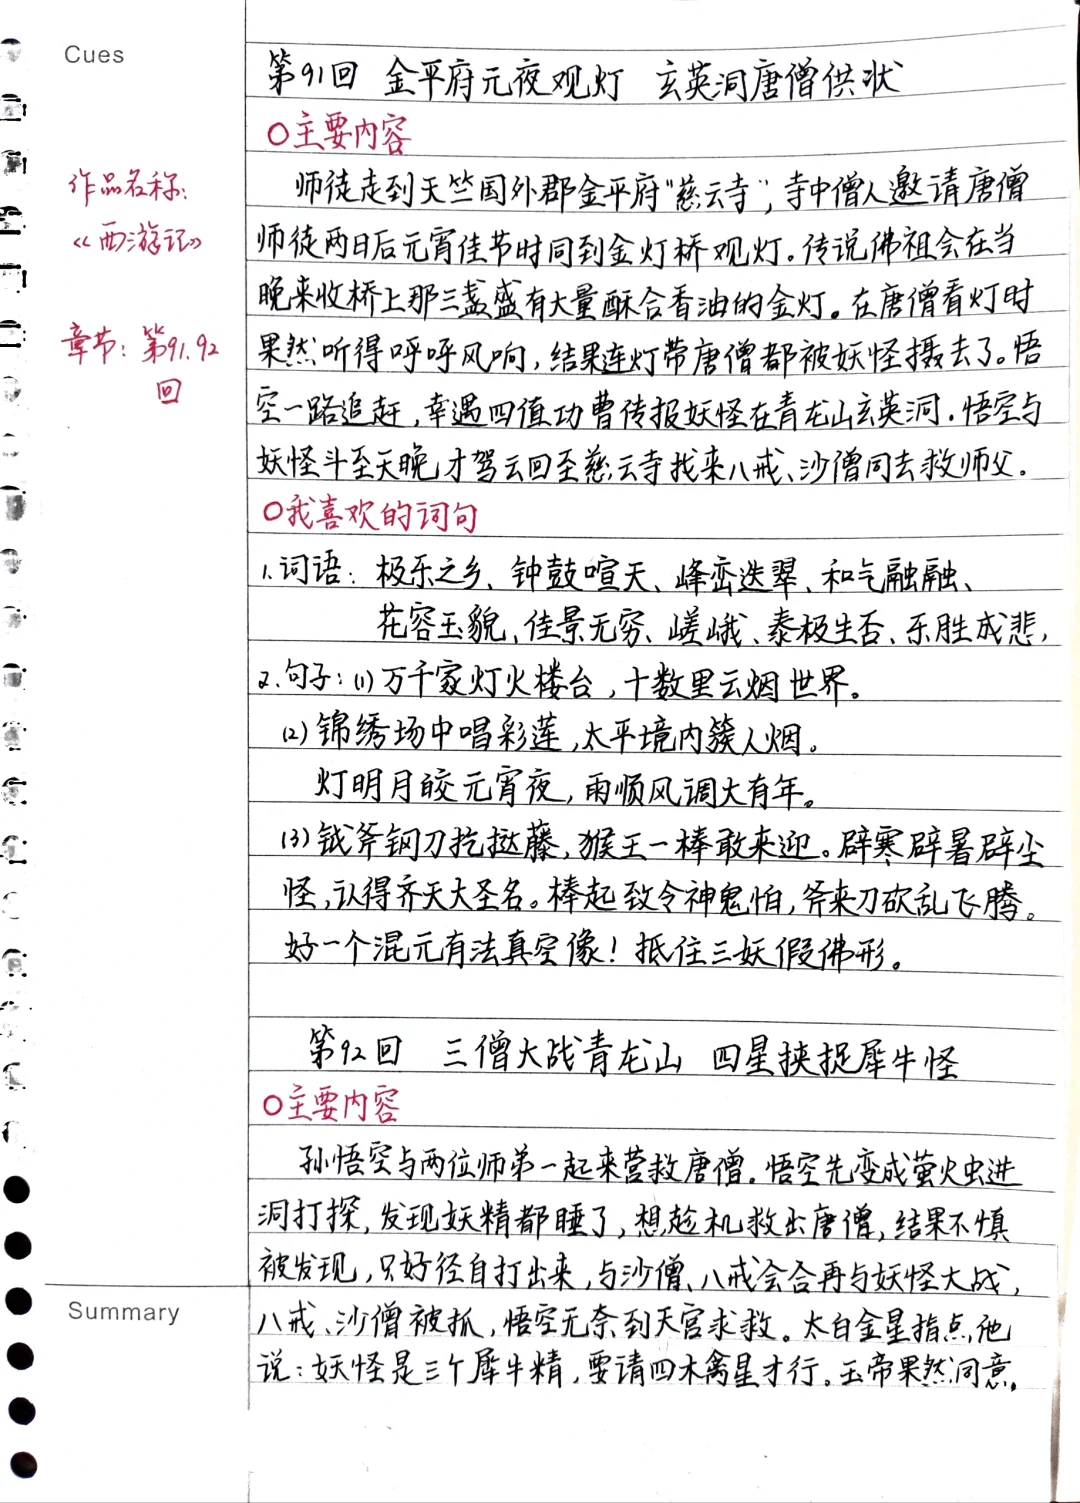 Cues
第91回 金平府元夜观灯 玄英洞唐僧供状
○主要内容
作品名称:
《西游记》
章节:第91.92
回
师徒走到天竺国外郡金平府“慈云寺”,寺中僧人邀请唐僧
师徒两日后元宵佳节时同到金灯桥观灯。传说佛祖会在当
晚来收桥上那三盏盛有大量酥合香油的金灯。在唐僧看灯时
果然听得呼呼风响,结果连灯带唐僧都被妖怪摄去了。悟
空一路追赶,幸遇四值功曹传报妖怪在青龙山玄英洞.悟空与
妖怪斗至天晚才驾云回至慈云寺找来八戒、沙僧同去救师父.
○我喜欢的词句
1.词语:极乐之乡、钟鼓喧天、峰峦迭翠、和气融融、
花容玉貌、佳景无穷、嵯峨、泰极生否、乐胜成悲,
2.句子:(1)万千家灯火楼台,十数里云烟世界。
(2)锦绣场中唱彩莲,太平境内簇人烟。
灯明月皎元宵夜,雨顺风调大有年。
(3)钺斧钢刀扢挞藤,猴王一棒敢来迎。辟寒辟暑辟尘
怪,认得齐天大圣名。棒起致令神鬼怕,斧来刀砍乱飞腾。
好一个混元有法真空像!抵住三妖假佛形。
第92回 三僧大战青龙山 四星挟捉犀牛怪
○主要内容
孙悟空与两位师弟一起来营救唐僧。悟空先变成萤火虫进
洞打探,发现妖精都睡了,想趁机救出唐僧,结果不慎
被发现,只好径自打出来,与沙僧、八戒会合再与妖怪大战,
Summary
八戒、沙僧被抓,悟空无奈到天宫求救。太白金星指点他
说:妖怪是三个犀牛精,要请四木禽星才行。玉帝果然同意.